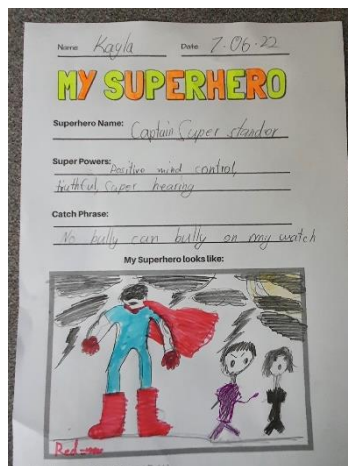 Name Kayla Date 7.06.22
MY SUPERHERO
Superhero Name: Captain Super standor
Super Powers: Positive mind control,
truthful, Super hearing
Catch Phrase:
No bully can bully on my watch
My Superhero looks like: